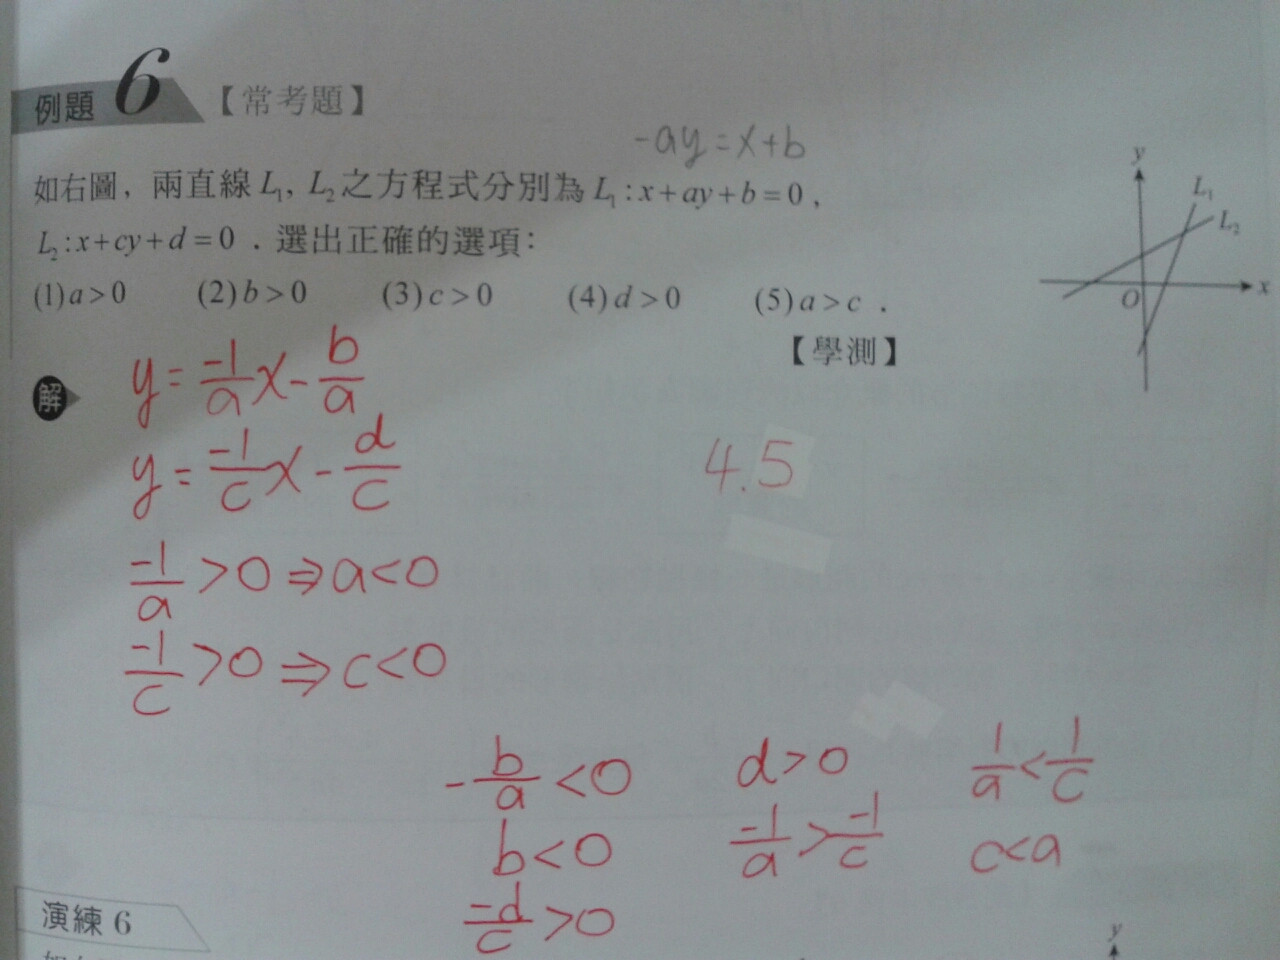 例題 6 【常考題】
-ay=x+b
如右圖，兩直線 L₁, L₂ 之方程式分別為 L₁:x+ay+b=0，
L₂:x+cy+d=0．選出正確的選項：
(1)a>0 (2)b>0 (3)c>0 (4)d>0 (5)a>c．
【學測】
y
L₁
L₂
O
x
解
y=\frac{-1}{a}x-\frac{b}{a}
y=\frac{-1}{c}x-\frac{d}{c}
4.5
\frac{-1}{a}>0⇒a<0
\frac{-1}{c}>0⇒c<0
-\frac{b}{a}<0
b<0
\frac{-d}{c}>0
d>0
\frac{-1}{a}>\frac{-1}{c}
\frac{1}{a}<\frac{1}{c}
c<a
演練 6
y